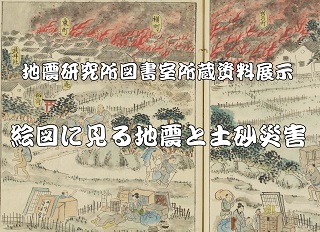 地震研究所図書室所蔵資料展示
絵図に見る地震と土砂災害